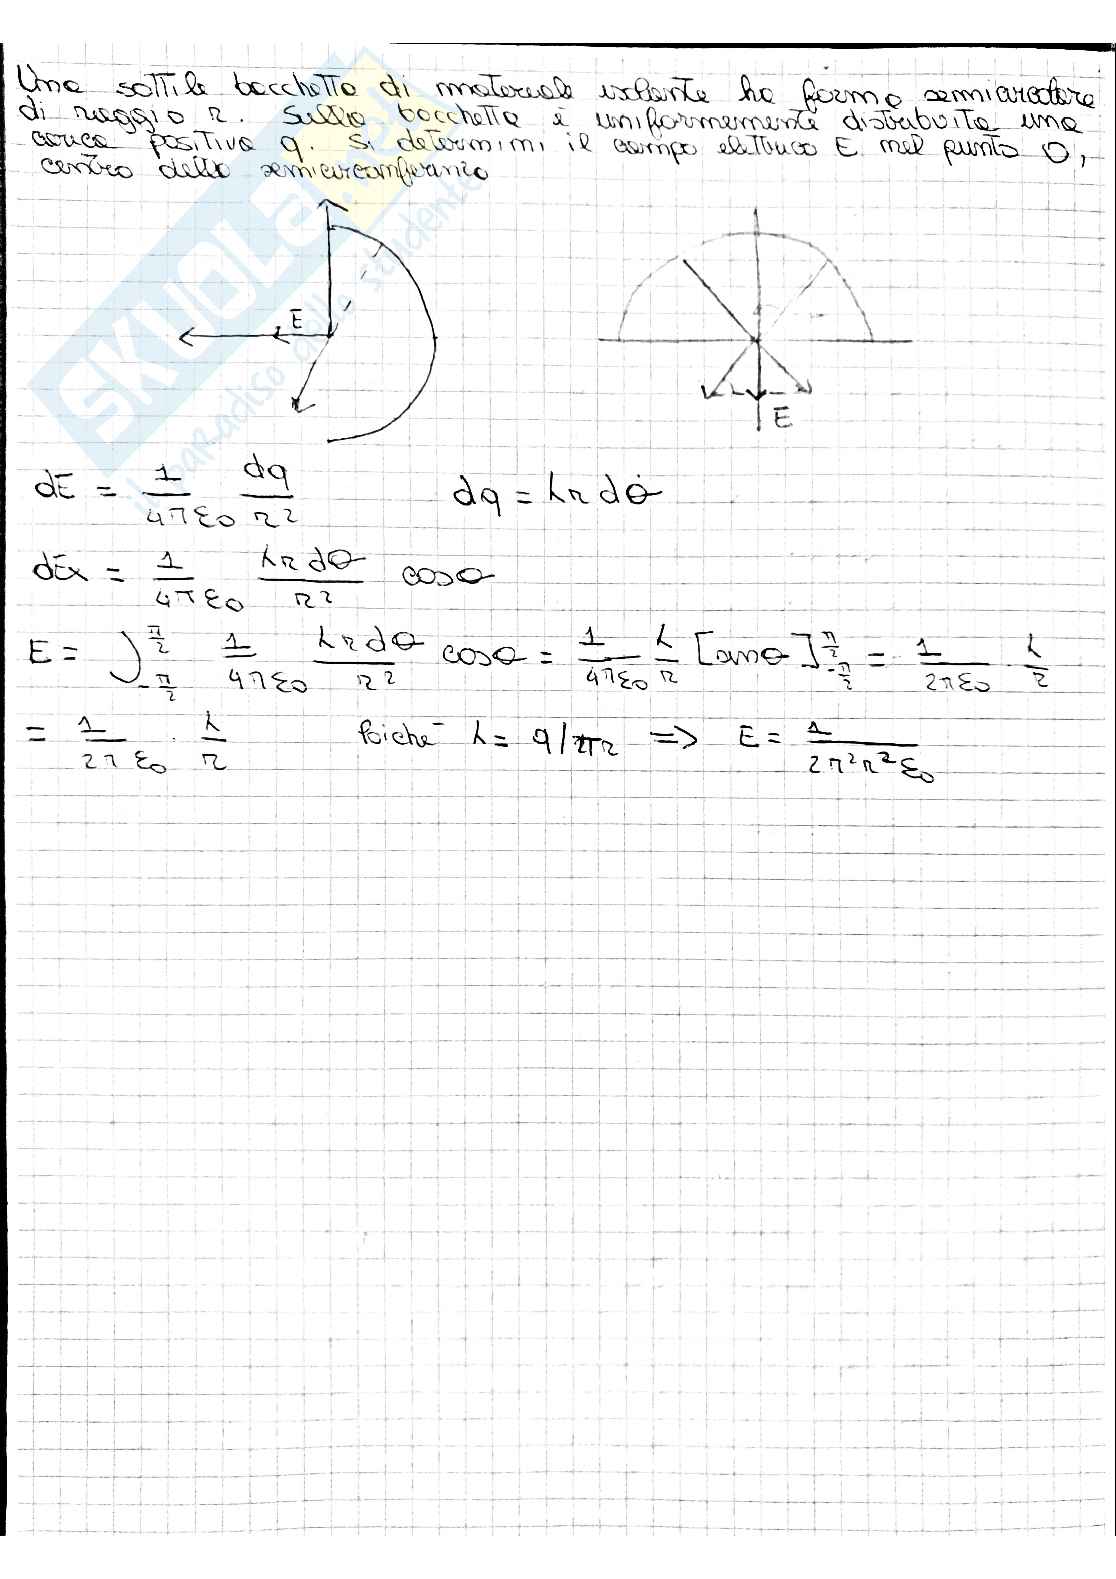 Una sottile bacchetta di materiale isolante ha forma semicircolare
di raggio r. Sulla bacchetta è uniformemente distribuita una
carica positiva q. Si determini il campo elettrico E nel punto O,
centro della semicirconfernza
SKUOLA.net
il paradiso dello studente
E
E
dE = 1/4πε0 dq/r² dq = λr dθ
dEx = 1/4πε0 λr dθ/r² cosθ
E = ∫_{-π/2}^{π/2} 1/4πε0 λr dθ/r² cosθ = 1/4πε0 λ/r [senθ]_{-π/2}^{π/2} = 1/2πε0 · λ/r
= 1/2πε0 · λ/r Poiché λ = q/πr => E = 1/2π²r²ε0